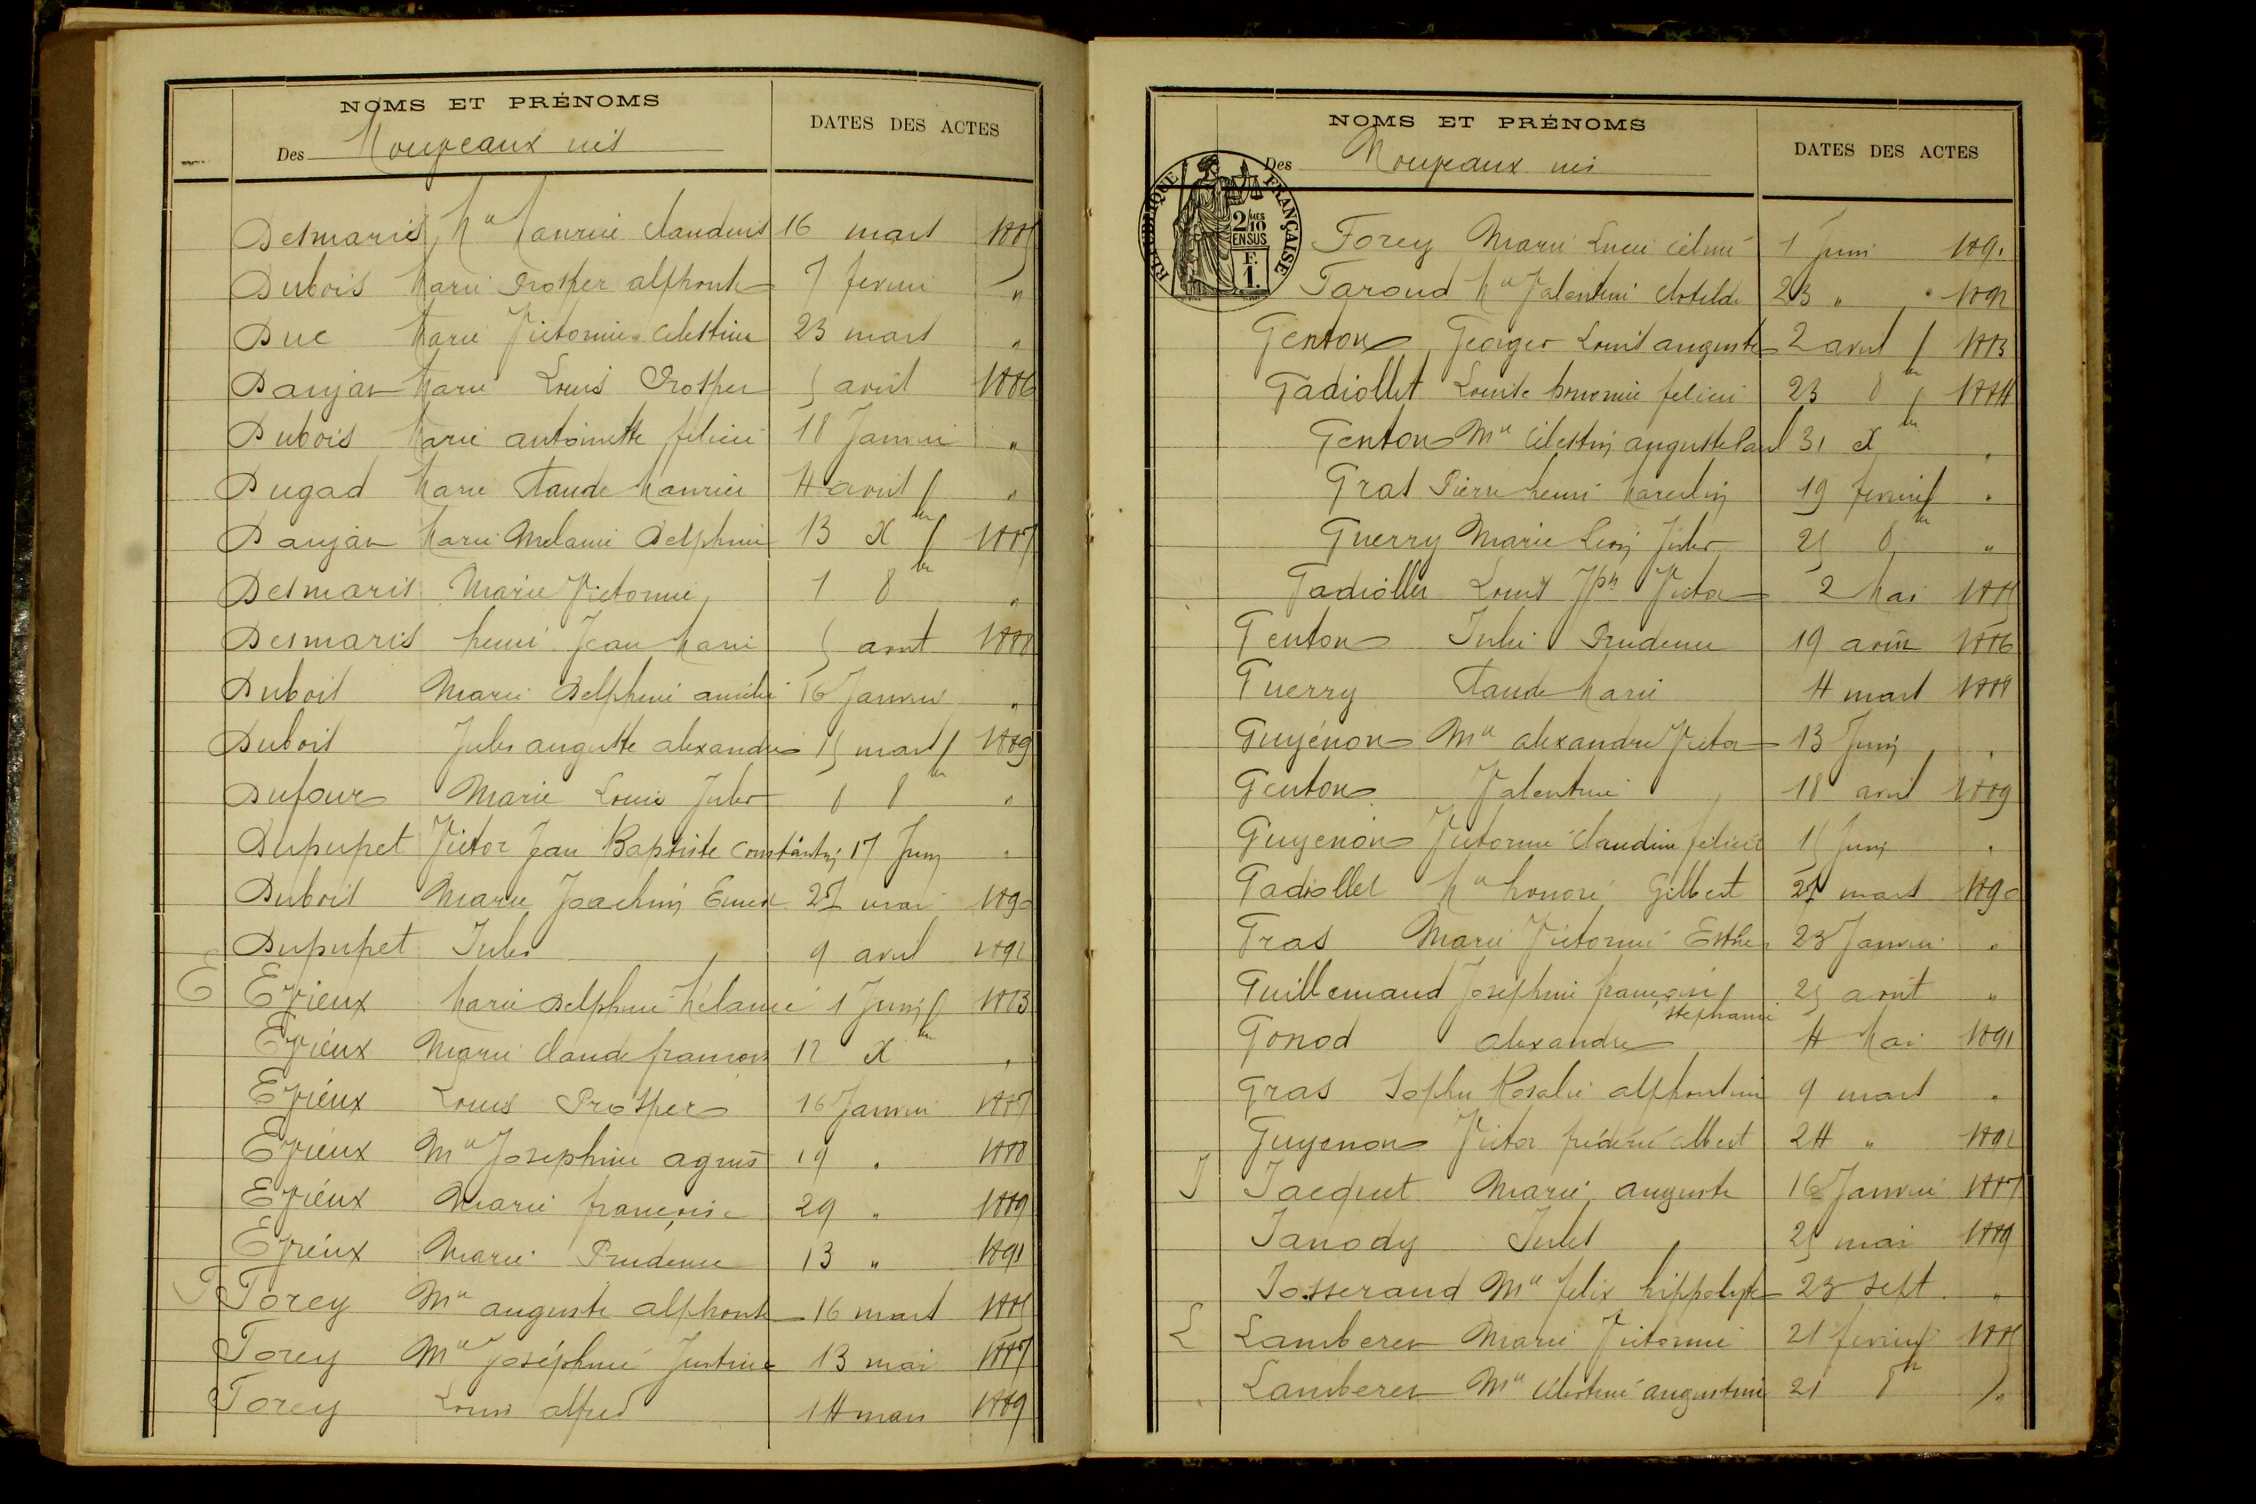 NOMS ET PRÉNOMS
DATES DES ACTES
Des Nouveaux nés
Desmaris Mie Maurice Claudius 16 mars 1885
Dubois Marie Prosper alphonse 7 fevrier "
Duc Marie Victorine Celestine 23 mars "
Danjan Marie Louis Prosper 5 avril 1886
Dubois Marie antoinette félicie 18 Janvier "
Dugad Marie Claude Maurice 4 avril "
Danjan Marie Melanie Delphine 13 Xbre 1887
Desmaris Marie Victorine 1 8bre "
Desmaris henri Jean Marie 5 aout 1888
Dubois Marie Delphine amélie 16 Janvier "
Dubois Jules auguste alexandre 15 mars 1889
Dufour Marie Louis Jules 8 8bre "
Dupupet Victor Jean Baptiste Constantin 17 Juin "
Dubois Marie Joachim 27 mai 1890
Dupupet Jules 9 avril 1892
E Epieux Marie Delphine Mélanie 1 Juin 1883
Epiéux Marie Claude francois 12 Xbre "
Epiéux Louis Prosper 16 Janvier 1887
Epiéux Mie Josephine agnes 19 " 1888
Epiéux Marie françoise 29 " 1889
Epiéux Marie Prudence 13 " 1891
F Forey Mie auguste alphonse 16 mars 1885
Forey Mie Joséphine Justine 13 mai 1887
Forey Louis alfred 14 mars 1889
NOMS ET PRÉNOMS
DATES DES ACTES
Des Nouveaux nés
RÉPUBLIQUE FRANÇAISE
2/10MES
EN SUS
F.
1.
Forey Marie Lucie 1 Juin 1891
Faroud Mie Valentine Clotilde 23 " 1892
Genton Georges Louis auguste 2 avril 1883
Gadiollet Louise felicie 23 8bre 1884
Genton Mie Célestin auguste Paul 31 Xbre "
Gras Pierre henri Marcelin 19 fevrier "
Guerry Marie Léon Jules 25 8bre "
Gadiollet Louis Jph Victor 2 Mai 1885
Genton Julie Prudence 19 1886
Guerry Claude Marie 4 mars 1888
Guyénon Mie alexandre Victor 13 Juin "
Genton Valentine 18 avril 1889
Guyenon Victorine Claudine félicie 15 Juin "
Gadiollet Mie honoré Gilbert 27 mars 1890
Gras Marie Victorine Esther 23 Janvier "
Guillemaud Joséphine françoise Stéphanie 25 août "
Gonod alexandre 4 Mai 1891
Gras Sophie Rosalie alphonsine 9 mars "
Guyenon Victor fréderic albert 24 " 1892
J Jacquet Marie auguste 16 Janvier 1887
Janody Jules 25 mai 1889
Josserand Mie felix hippolyte 23 sept "
L Lamberet Marie Victorine 21 fevrier 1885
Lamberet Mie Célestine augustine 21 8bre "